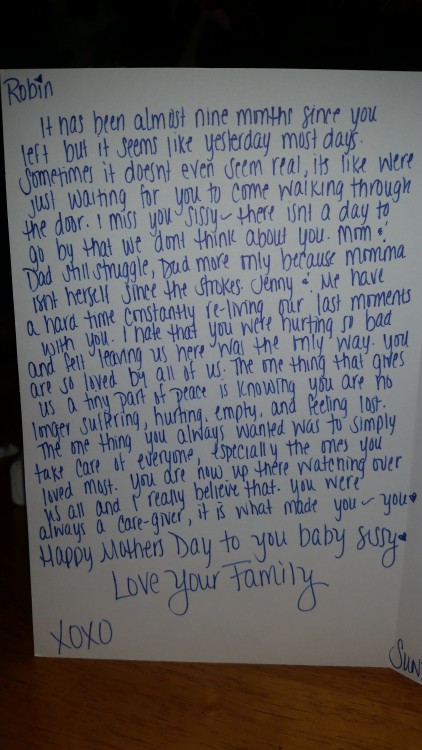 Robin
It has been almost nine months since you
left but it seems like yesterday most days.
Sometimes it doesnt even seem real, its like were
just waiting for you to come walking through
the door. I miss you sissy~ there isnt a day to
go by that we dont think about you. Mom &
Dad still struggle, Dad more only because momma
isnt herself since the strokes. Jenny & Me have
a hard time constantly re-living our last moments
with you. I hate that you were hurting so bad
and felt leaving us here was the only way. you
are so loved by all of us. The one thing that gives
us a tiny part of peace is knowing you are no
longer suffering, hurting, empty, and feeling lost.
The one thing you always wanted was to simply
take care of everyone, especially the ones you
loved most. you are now up there watching over
us all and I really believe that. you were
always a care-giver, it is what made you ~ you♥
Happy Mothers Day to you baby sissy♥
Love Your Family
XOXO
Sun